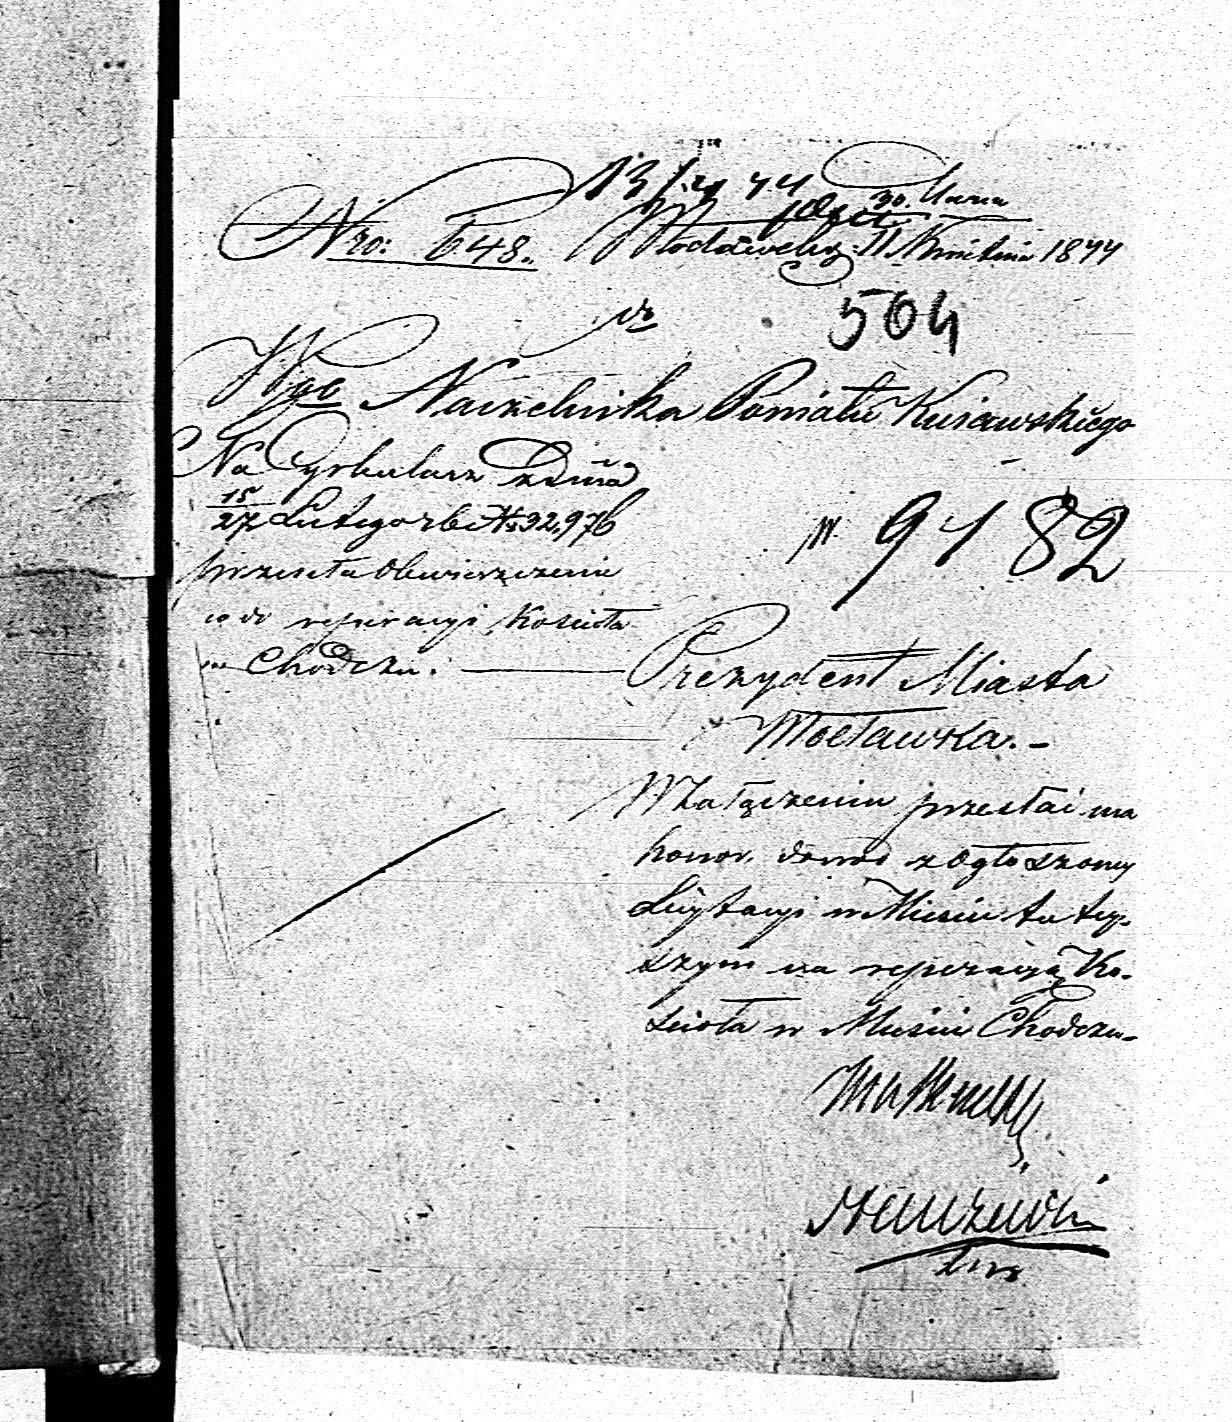 Nro: 648. 30. Marca
11 Kwietnia 1844
504
Wgo Naczelnika Powiatu Kujawskiego
Na Cyrkularz z dnia
15/27 Lutego rb. No 32,976
przesyła Obwieszczenia
co do reperacyi Kościoła
w Chodczu.
9182
Prezydent Miasta
Włocławka. -
W załączeniu przesłać ma
honor, dowód z ogłoszoney
Licytacyi w Mieście tutey-
szym na reperacyą Ko-
ścioła w Mieście Chodczu